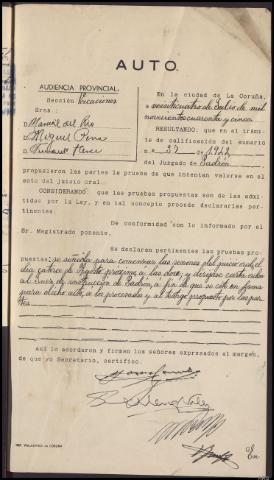 AUTO.
AUDIENCIA PROVINCIAL.
Sección Vacaciones
Sres.
D Manuel del Río
D Miguel Pena
D
En la ciudad de La Coruña,
a veinticuatro de Julio de mil
novecientos cuarenta y cinco
RESULTANDO: que en el trámi-
te de calificación del sumario
n.º 27 de 1944
del Juzgado de Padrón
propusieron las partes la prueba de que intentan valerse en el
acto del juicio oral.
CONSIDERANDO que las pruebas propuestas son de las admi-
tidas por la Ley, y en tal concepto procede declararlas per-
tinentes.
De conformidad con lo informado por el
Sr. Magistrado ponente.
Se declaran pertinentes las pruebas pro-
puestas; se señala para comenzar las sesiones del juicio oral el
día catorce de Agosto próximo a las doce, y diríjase carta orden
al Juez de instrucción de Padrón, a fin de que se cite en forma
para dicho acto, a la procesada y al testigo propuesto por las par-
tes
Así lo acordaron y firman los señores expresados al margen,
de que yo Secretario, certifico.
IMP. VALLADARES.-LA CORUÑA